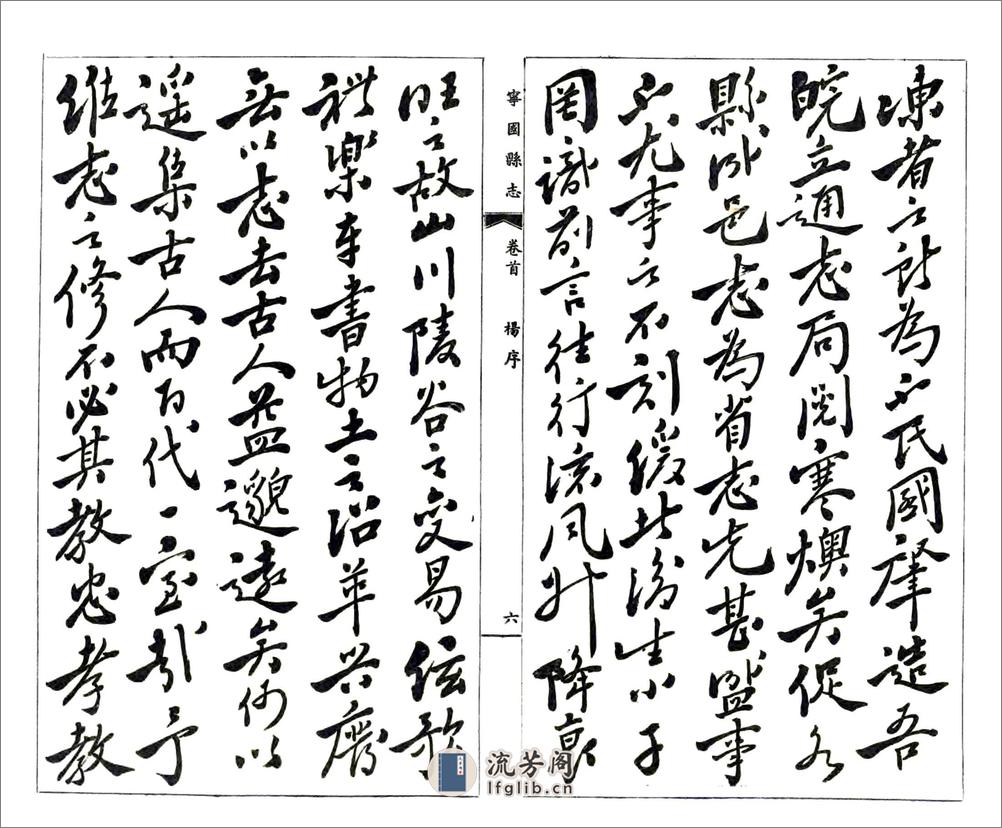 凍者之計為不民國肇造吾
皖立通志局閱寒燠矣促各
縣收邑志為省志先甚盛事
不尤事之不刻緩此後生小子
罔識前言往行流風升降哀
寧國縣志
卷首
楊序
六
旺之故山川陵谷之變易弦歌
禮樂車書物土之沿革興廢
無以志去古人益邈遠矣何以
遥集古人而百代一室哉予
維志之修不必其教忠孝教
流芳阁
lfglib.cn